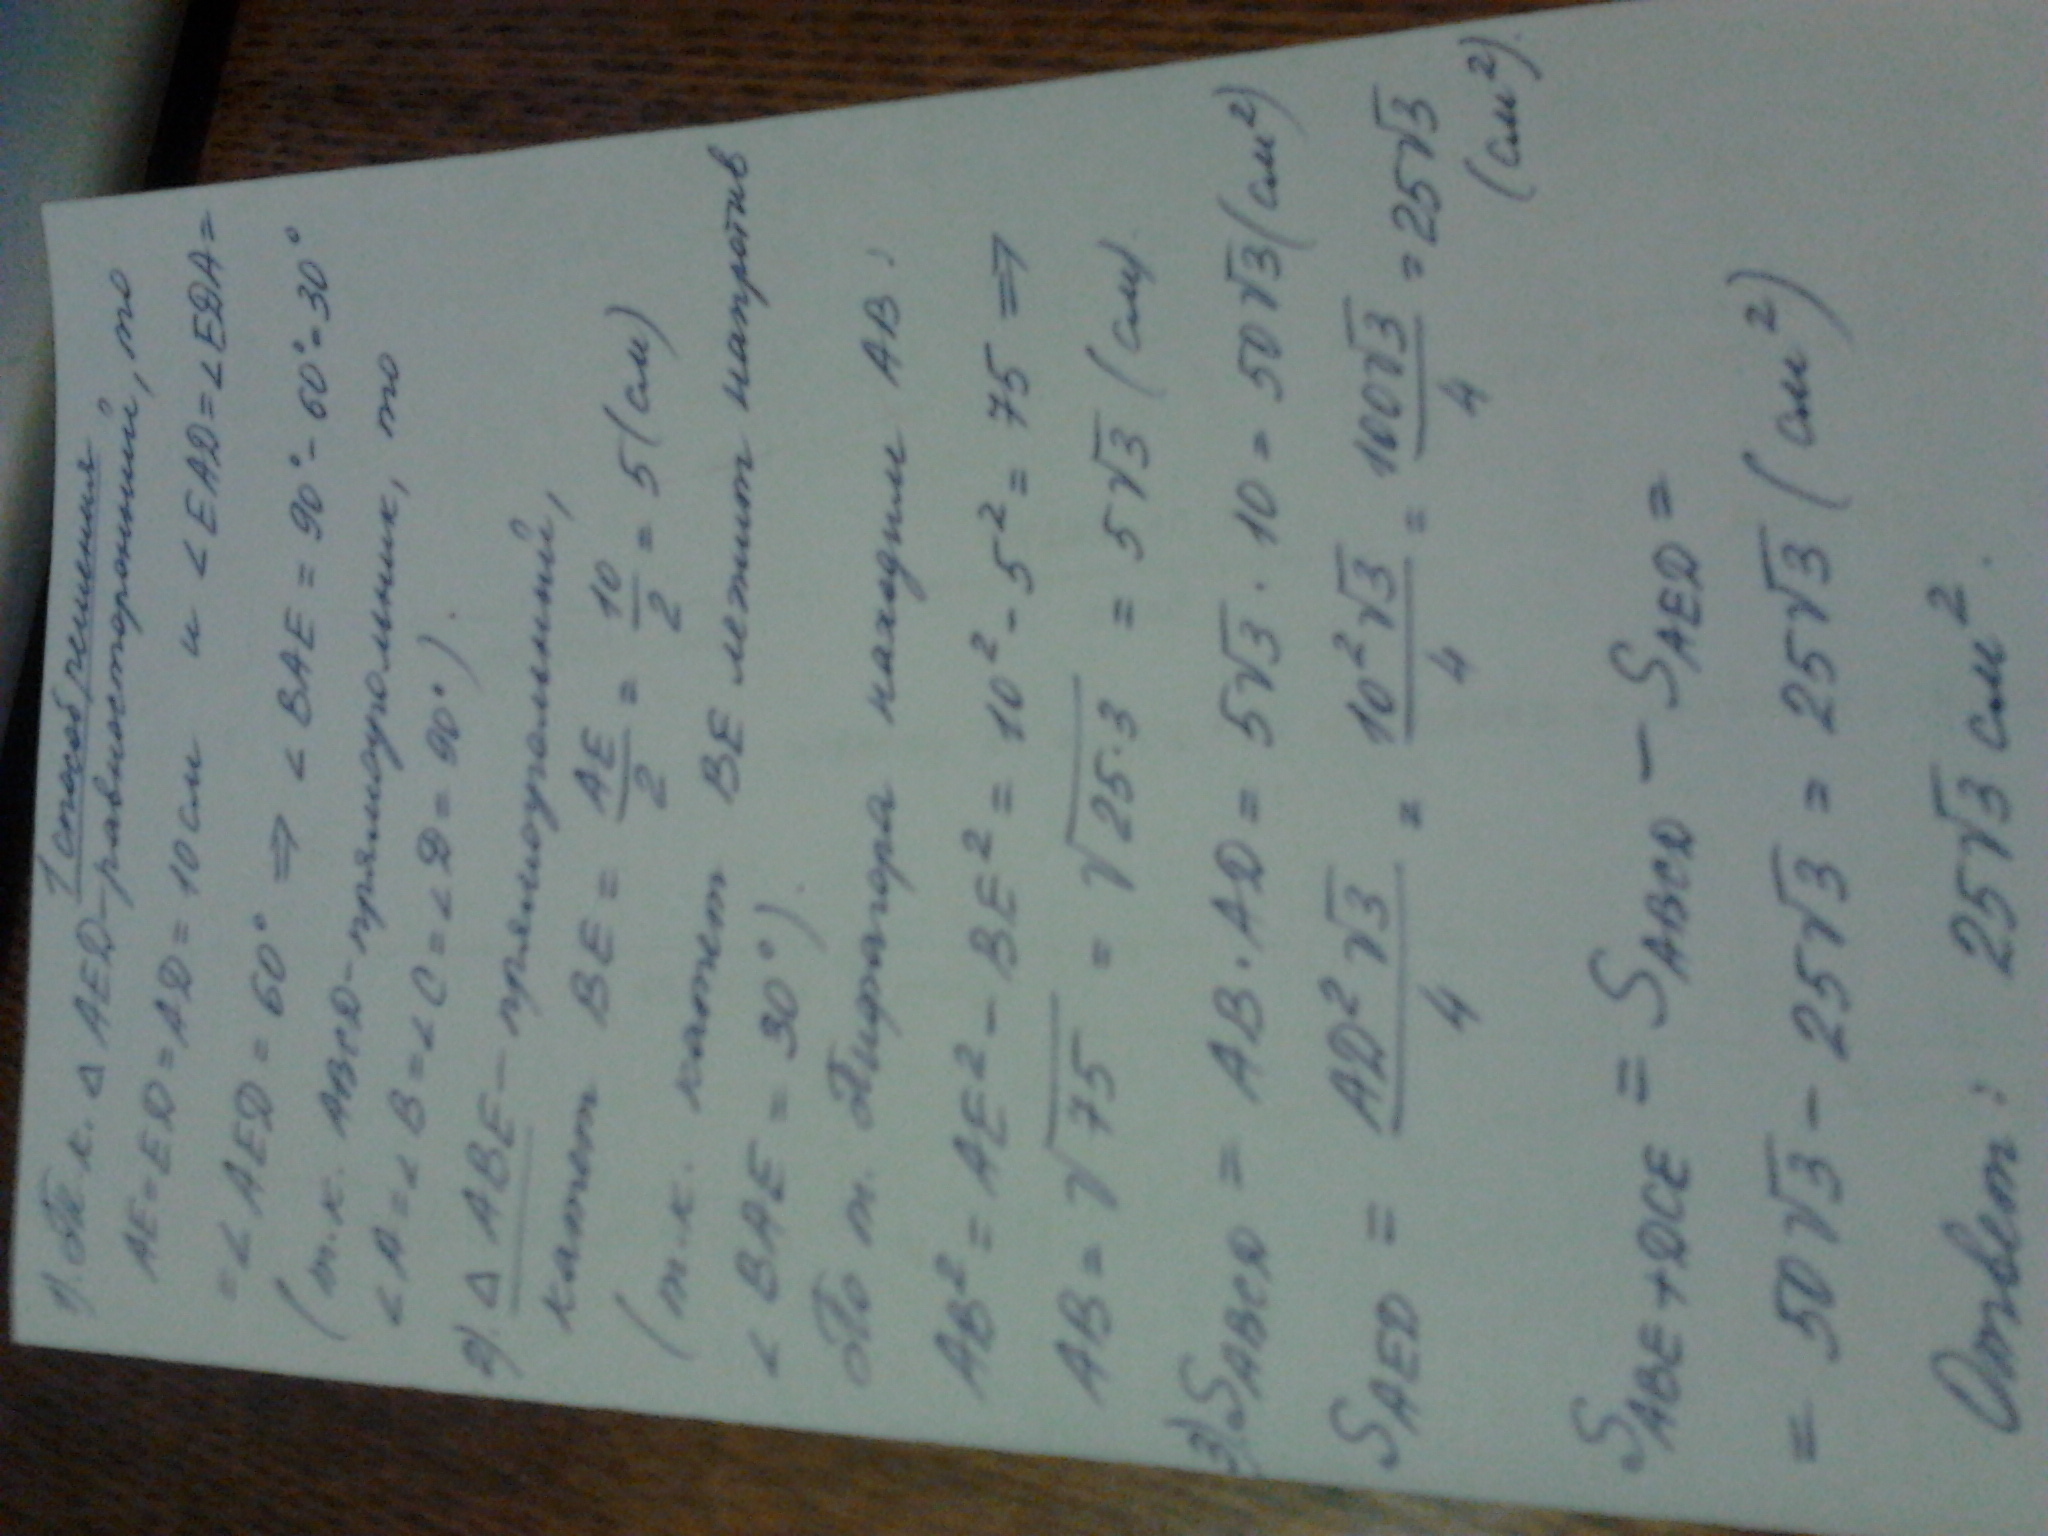 1 способ решения
1). Т.к. △ AED-равносторонний, то
AE=ED=AD=10см и ∠EAD=∠EDA=
=∠AED=60° ⇒ ∠BAE=90°-60°=30°
(т.к. ABCD-прямоугольник, то
∠A=∠B=∠C=∠D=90°).
2). △ABE- прямоугольный,
катет BE = AE/2 = 10/2 = 5(см)
(т.к. катет BE лежит напротив
∠BAE=30°).
По т. Пифагора находим AB:
AB² = AE² - BE² = 10² - 5² = 75 ⇒
AB = √75 = √25·3 = 5√3 (см).
3) S_ABCD = AB·AD = 5√3·10 = 50√3(см²)
S_AED = AD²√3/4 = 10²√3/4 = 100√3/4 = 25√3
(см²).
S_ABE+DCE = S_ABCD - S_AED =
= 50√3 - 25√3 = 25√3 (см²)
Ответ: 25√3 см².